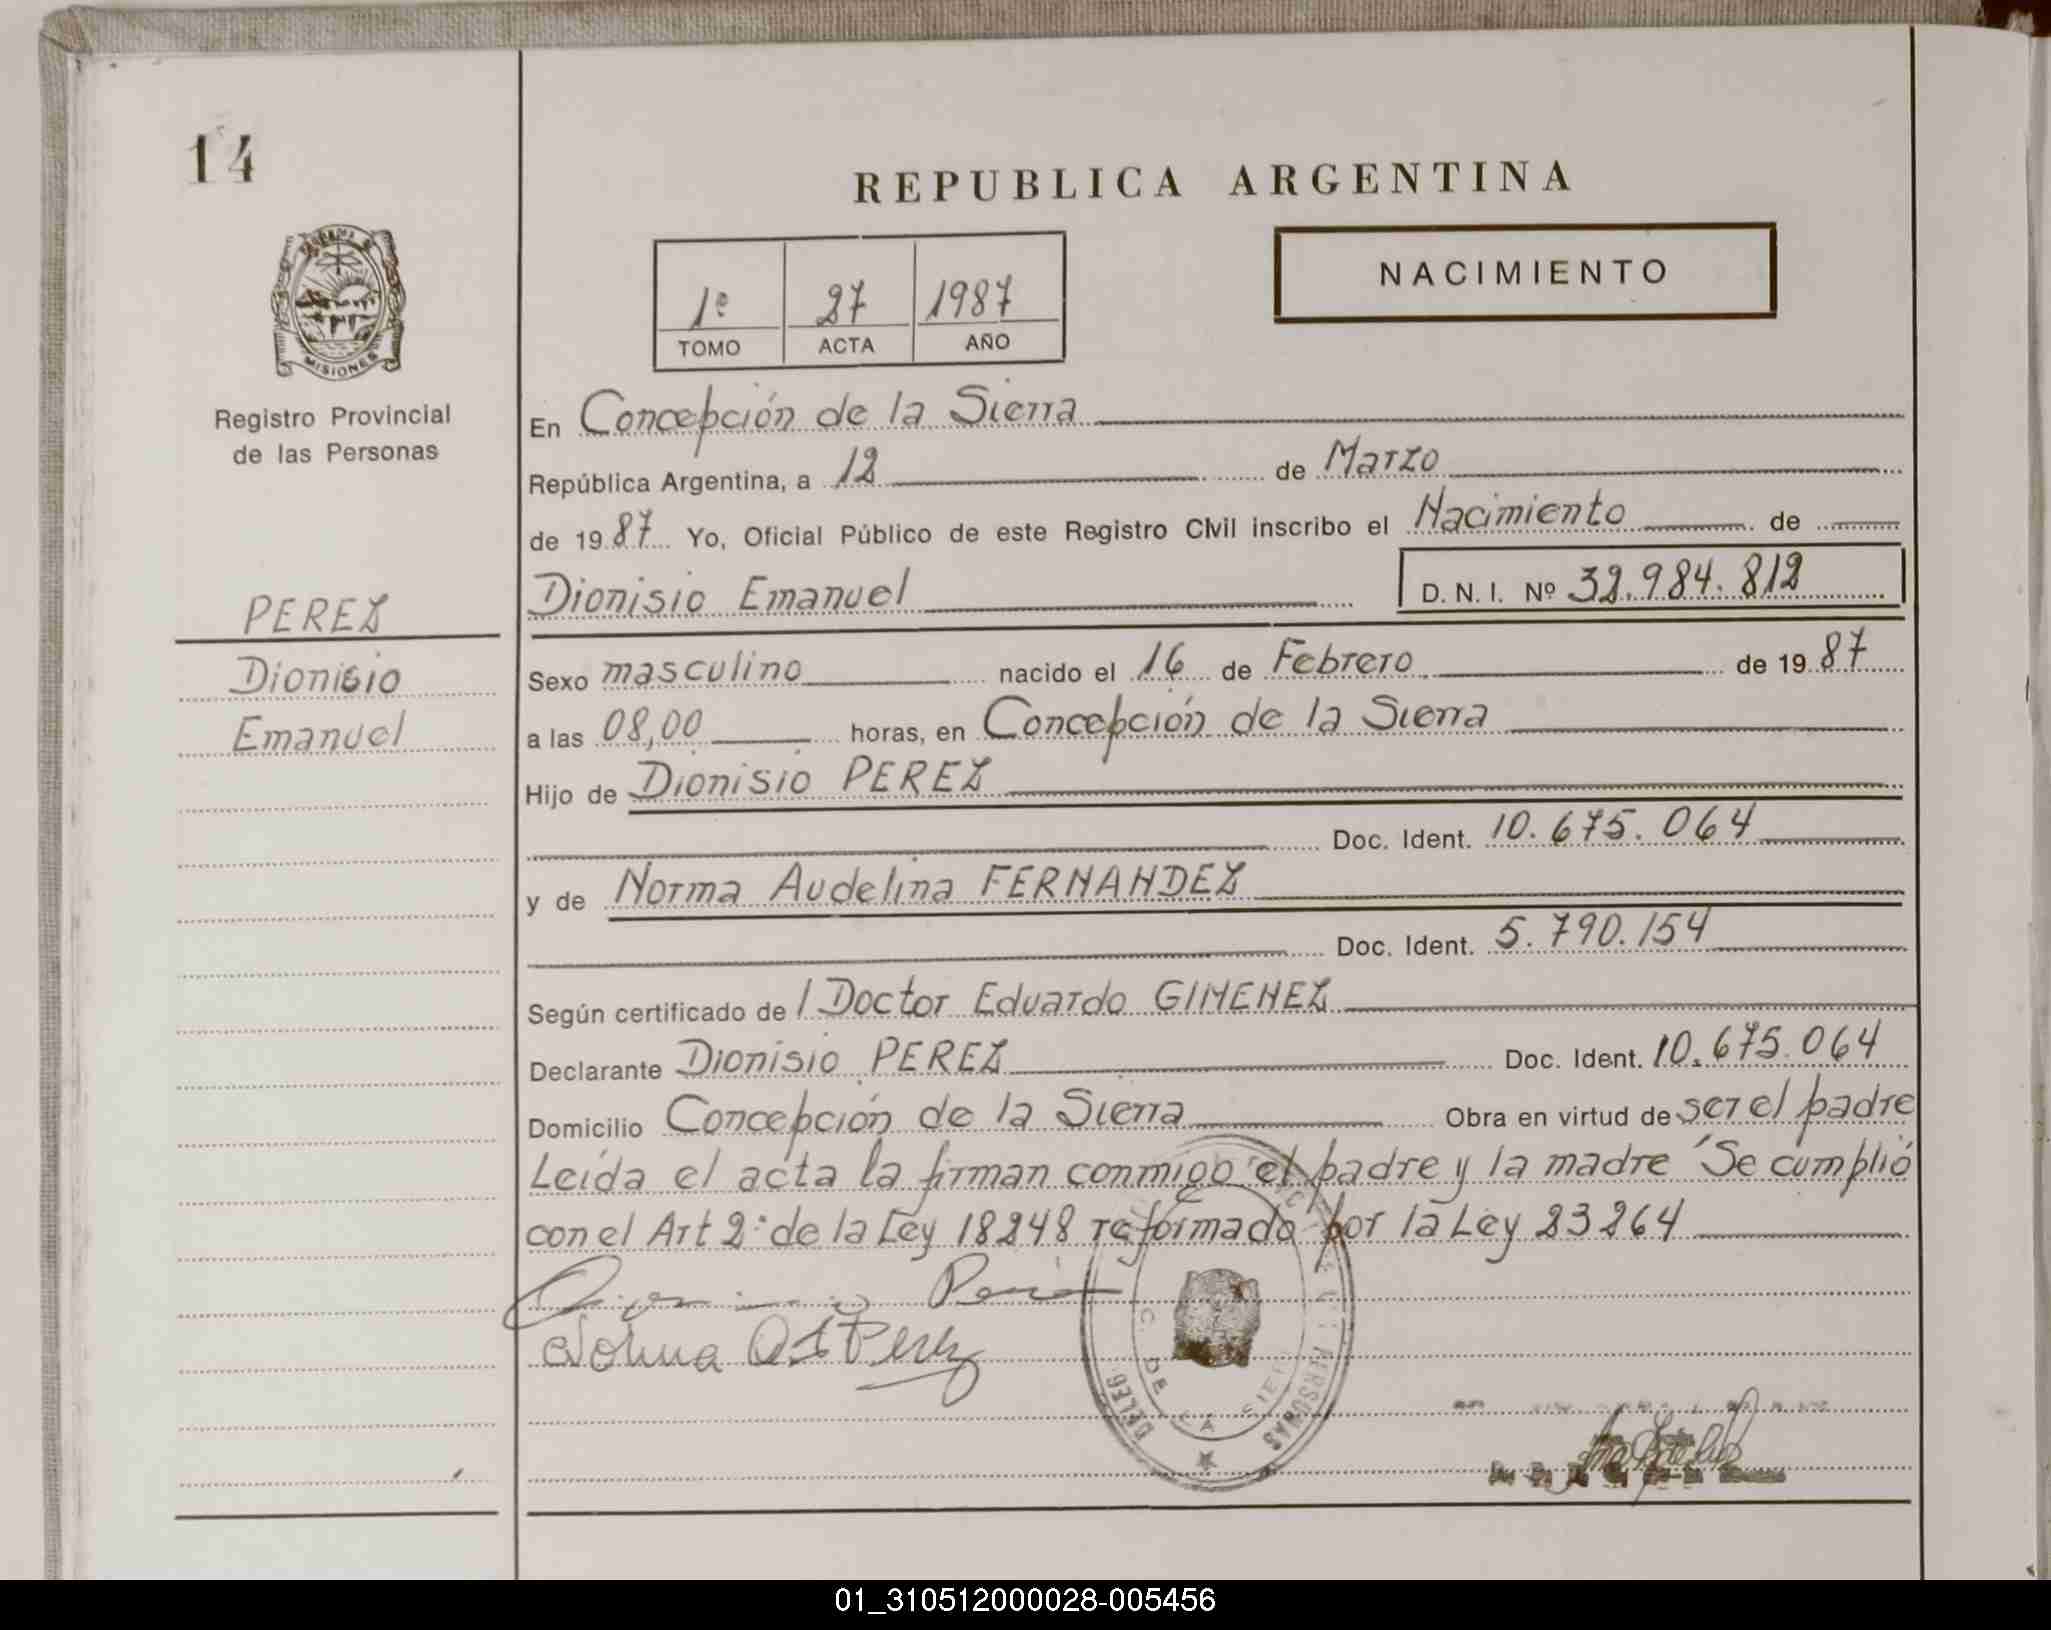 14
REPUBLICA ARGENTINA
NACIMIENTO
1º 27 1987
TOMO ACTA AÑO
MISIONES
Registro Provincial
de las Personas
En Concepción de la Sierra
República Argentina, a 12 de Marzo
de 1987 Yo, Oficial Público de este Registro Civil inscribo el Nacimiento de
Dionisio Emanuel D. N. I. Nº 32.984.812
PEREZ
Dionisio
Emanuel
Sexo masculino nacido el 16 de Febrero de 1987
a las 08,00 horas, en Concepción de la Sierra
Hijo de Dionisio PEREZ
Doc. Ident. 10.675.064
y de Norma Audelina FERNANDEZ
Doc. Ident. 5.790.154
Según certificado de l Doctor Eduardo GIMENEZ
Declarante Dionisio PEREZ Doc. Ident. 10.675.064
Domicilio Concepción de la Sierra Obra en virtud de ser el padre
Leída el acta la firman conmigo el padre y la madre "Se cumplió
con el Art 2: de la Ley 18248 reformado por la Ley 23264
Perez
Norma Perez
DELEG PERSONAS
C. DE LA SIERRA
01_310512000028-005456